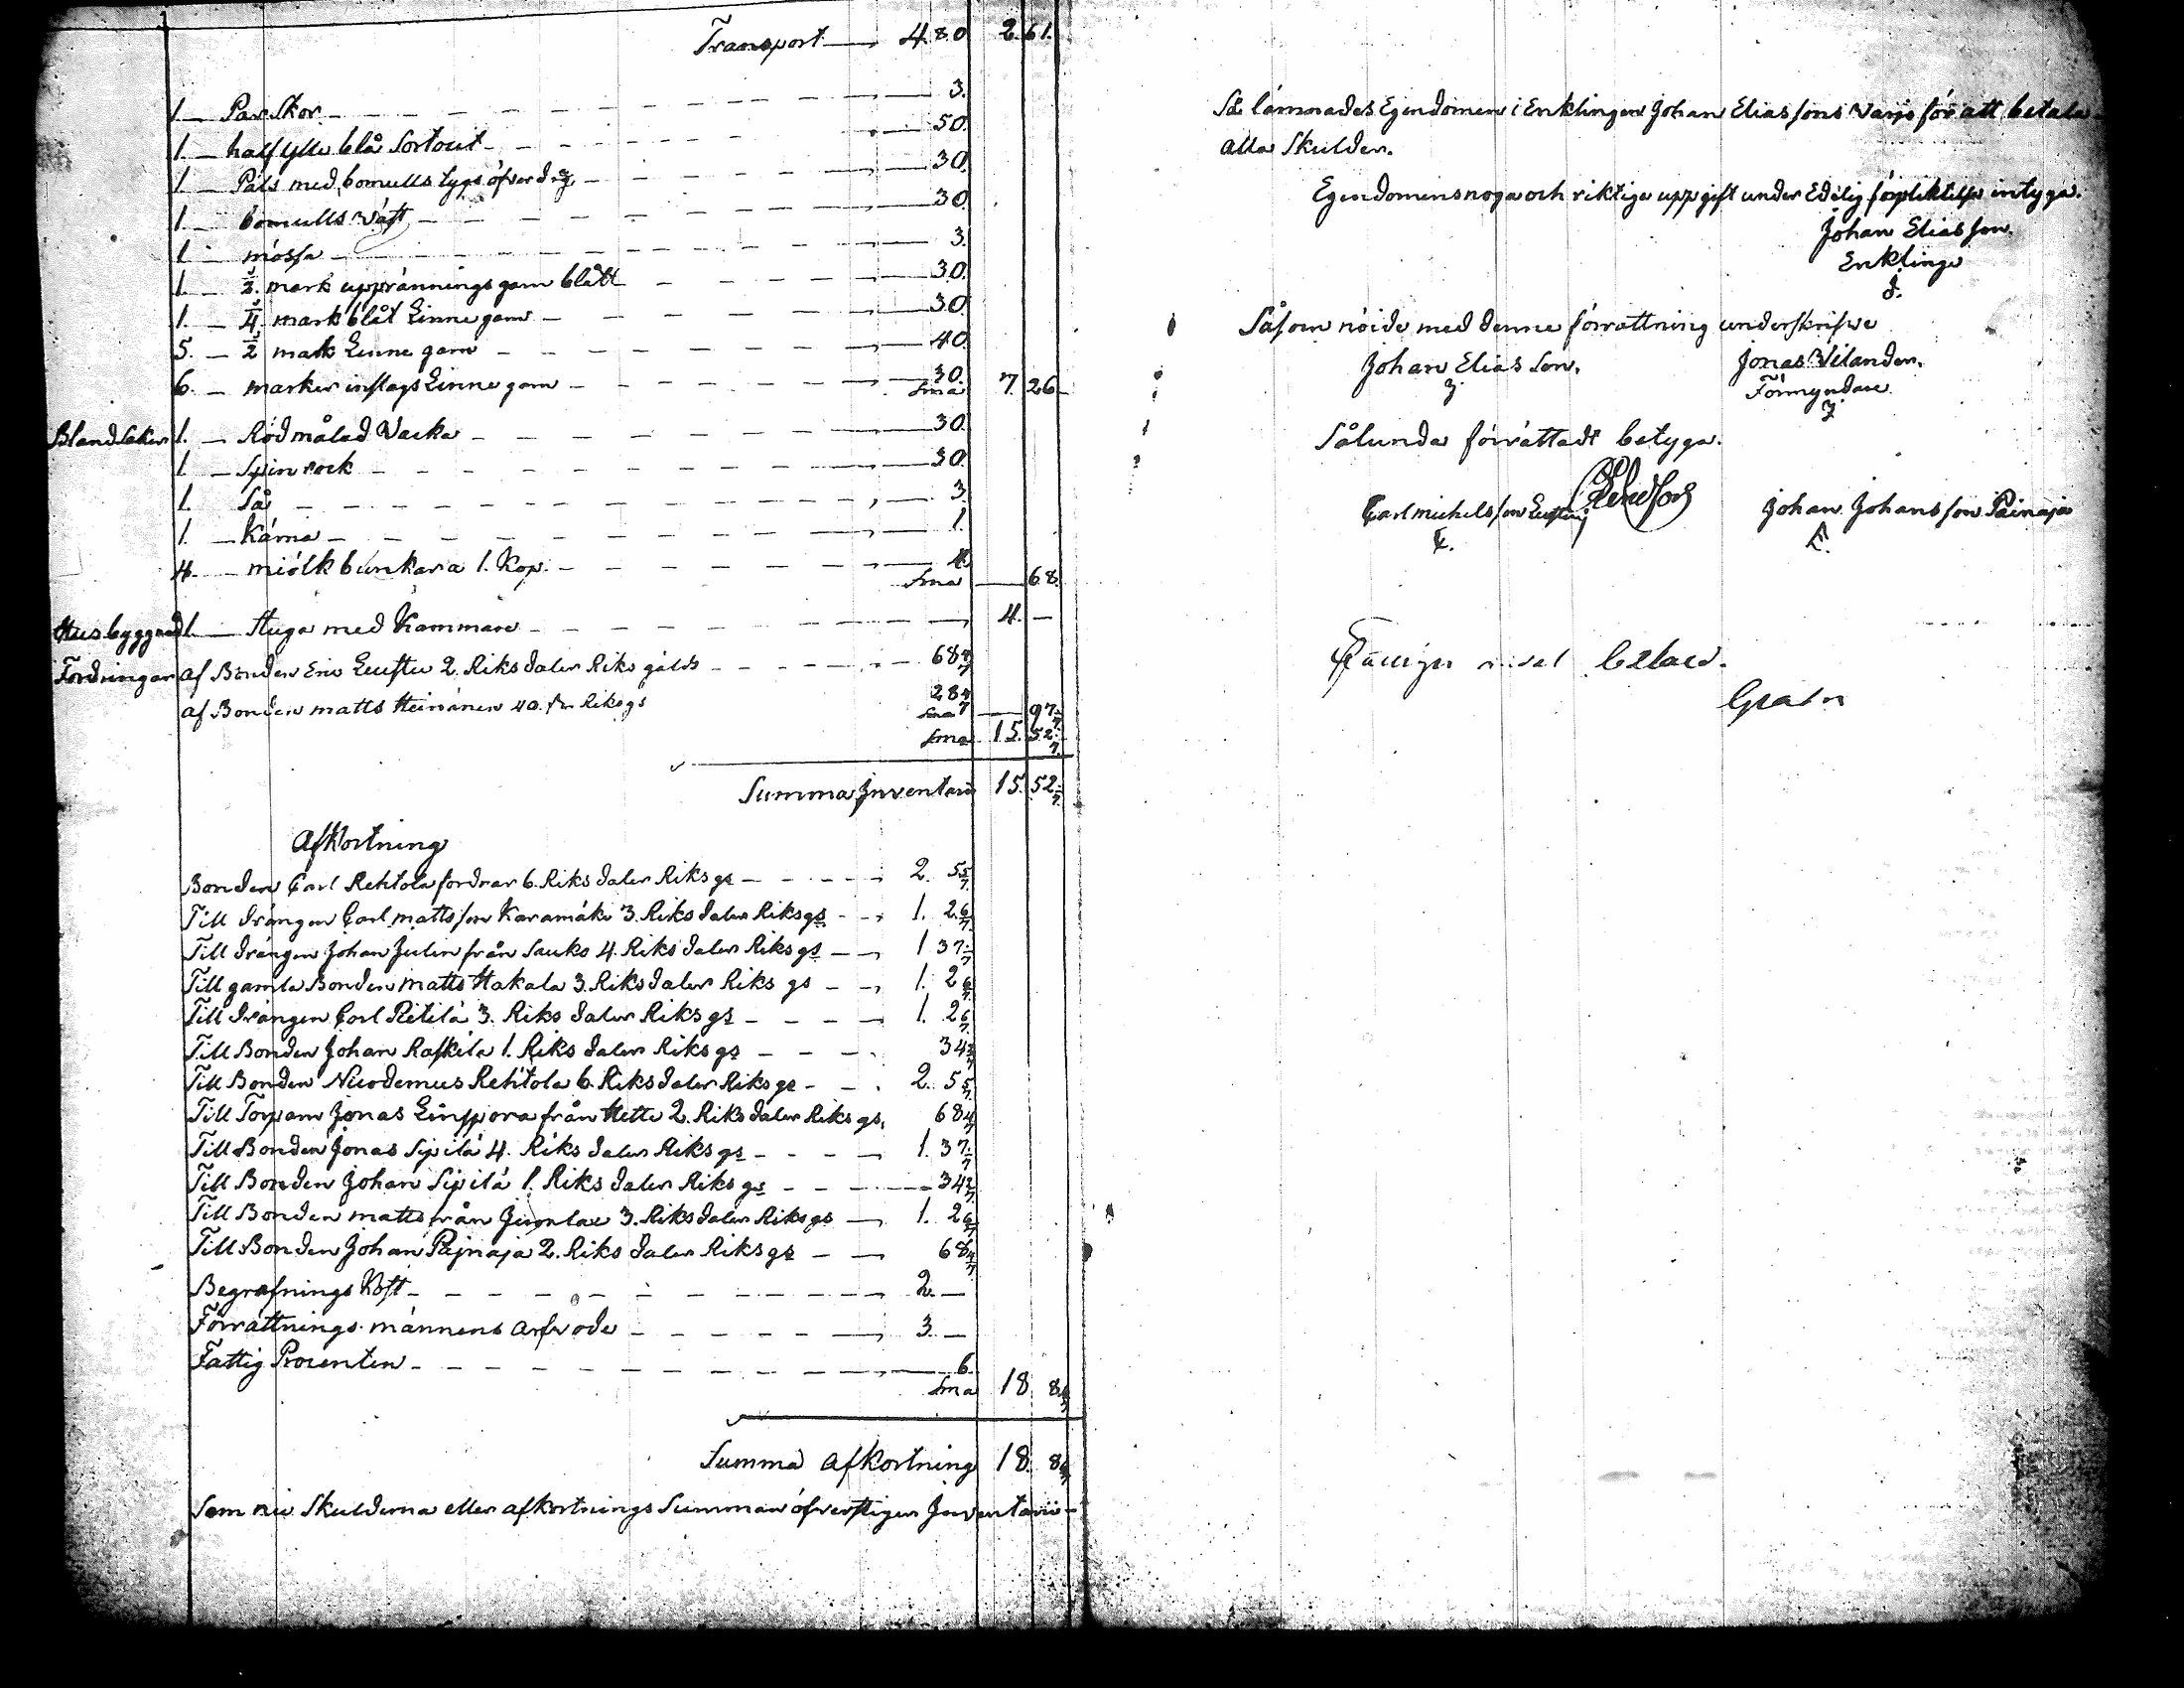 Transport 4. 80 2. 61.
1. Par Skor 3.
1. half ylle blå Sortout 50.
1. Päls med bomulls tygs öfverdrag 30.
1. bomulls Väst 30.
1 mössa 3.
1. 1/2 mark upprännings garn blått 30.
1. 1/4 mark blåt Linne garn 30
5. 1/2 mark Linne garn 40
6. marker inslags Linne garn 30.
Sma 7. 26
Blandsaker 1. Rödmålad Vacka 30.
1 Spin rock 30.
1. Så 3.
1. Kärna 1.
4. miölk bunkar a 1. Kop. 4.
Sma 68.
Husbyggnad 1. Stuga med Kammare 4. —
Fordringar af Bonden Eric 2. Riksdaler Riks gälds 68 4/7
af Bonden matts Heinänen 40. Riksgs 28 4/7
Sma 97 1/7
Sma 15. 52 1/7
Summa Inventarii 15. 52 1/7
Afkortning
Bonden Carl Rehtola fordrar 6. Riksdaler Riksgs 2. 5 5/7
Till Drängen Carl mattsson Karamäki 3. Riksdaler Riksgs 1. 2 6/7
Till drängen Johan Julin från Sauko 4. Riksdaler Riksgs 1 37 1/7
Till gamla Bonden matts Hakala 3. Riksdaler Riks gs 1. 2 6/7
Till Drängen Carl Pietilä 3. Riksdaler Riksgs 1. 2 6/7
Till Bonden Johan Raskila 1. Riksdaler Riksgs 34 2/7
Till Bonden Nicodemus Rehtola 6. Riksdaler Riksgs 2. 5 5/7
Till Torparn Jonas från 2. Riksdaler Riksgs. 68 4/7
Till Bonden Jonas Sipilä 4. Riksdaler Riksgs 1. 37 1/7
Till Bonden Johan Sipilä 1. Riksdaler Riksgs 34 2/7
Till Bonden matts från 3. Riksdaler Riksgs 1. 2 6/7
Till Bonden Johan Pajnaja 2. Riksdaler Riksgs 68 4/7
Begrafnings Kost 2. —
Förrättnings männens arfvode 3. —
Fattig Procenten 6.
Sma 18. 8 4/7
Summa afkortning 18. 8 4/7
Som nu Skulderna eller afkortnings Summan öfverstiger Inventarii
Så lämnades Egendomen i Enklingen Johan Eliassons Värjo för att betala
alla Skulder.
Egendomens noga och riktiga uppgift under Edelig förpliktelse intyga.
Johan Eliasson
Enkling
Såsom nöide med denne förrättning underskrifwe
Johan Elias Son. Jonas Vilander.
Förmyndare
Sålunda förrättadt betyga.
Carl michelsson Johan Johansson Painaja
betald.